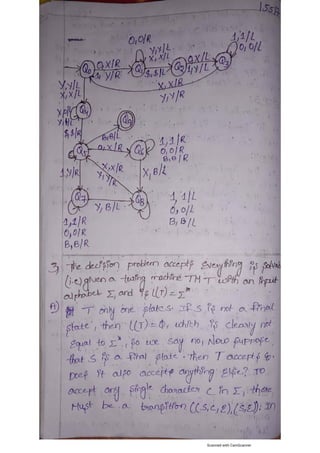 155
0,0/R
Y,Y/L
X,X/L
1,1/L
0,0/L
Q0
0,X/R
1,Y/R
Q1
$,$/L
Q2
0,X/L
1,Y/L
Q3
X,X/R
Y,Y/R
Y,Y/L
X,X/L
Q4
$,$/R
B,B/L
0,X/R
Q5
Q6
1,1/R
0,0/R
B,B/R
1,Y/R
X,X/R
Y,Y/R
X,B/L
Q7
Y,B/L
Q8
1,1/R
0,0/R
B,B/R
1,1/L
0,0/L
B,B/L
3, The decision problem accepts Everything is
(i.e) given a turing machine TM T with an input
alphabet Σ, and is L(T) = Σ*
A) T only one states. If S is not a final
state, then L(T) = Φ, which is clearly not
Equal to Σ*, so we say no, Now suppose,
that S is a final state. Then T accepts
Does it also accepts anything Else? To
accept any single character c in Σ, there
Must be a transition ((S,C,E),(S,E)). In
Scanned with CamScanner